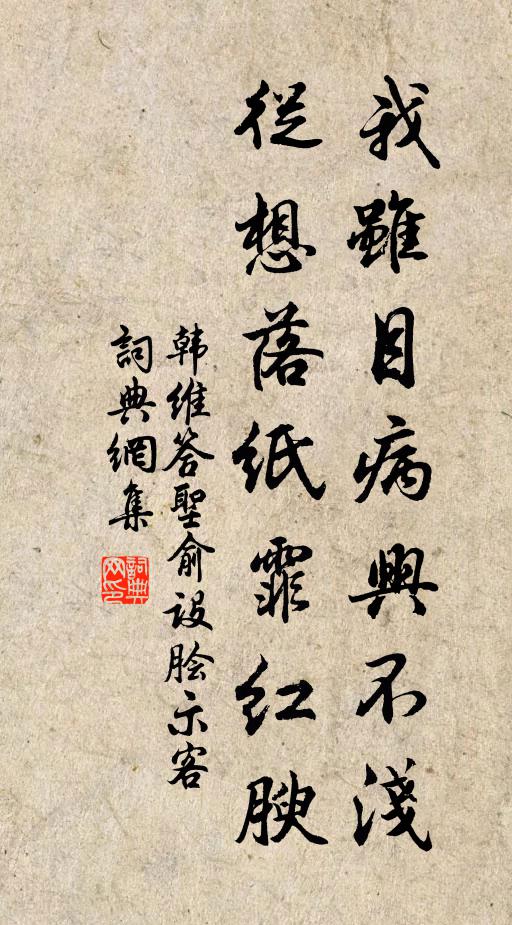 我雖目病興不淺
從想落紙霏紅腴
韩維答聖俞设脍示客
詞典網集
詞典网印